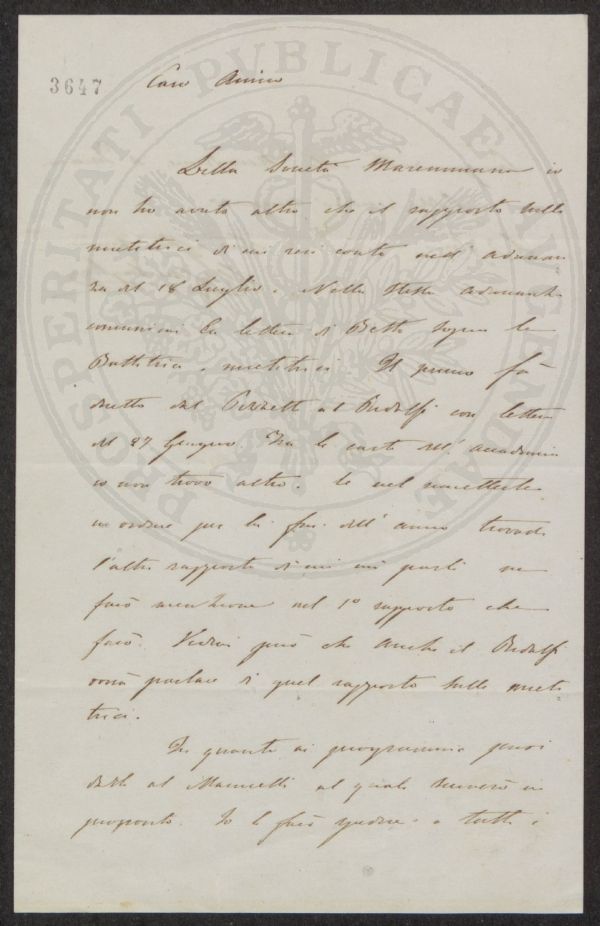 PROSPERITATI PVBLICAE AVGENDAE
3647
Caro Amico
Della Società Maremmana io
non ho avuto altro che il rapporto sulle
mietitrici di cui resi conto nell' adunan
za del 18 Luglio. Nella stessa adunanza
comunicai la lettera di Betti sopra la
Battitrici e mietitrici Il primo fù
diretto dal al Ridolfi con lettera
del 27 Giugno. Fra le carte dell' accademia
io non trovo altro. Se nel rimetterle
in ordine per la fine dell' anno trovadi
l'altro rapporto di cui mi parli ne
farò menzione nel 1º rapporto che
farò. Vedrai però che anche il Ridolfi
vorrà parlare di quel rapporto sulle mieti
trici.
In quanto ai programmi puoi
darli al al quale scriverò in
proposito. Io li farò spedire a tutti i